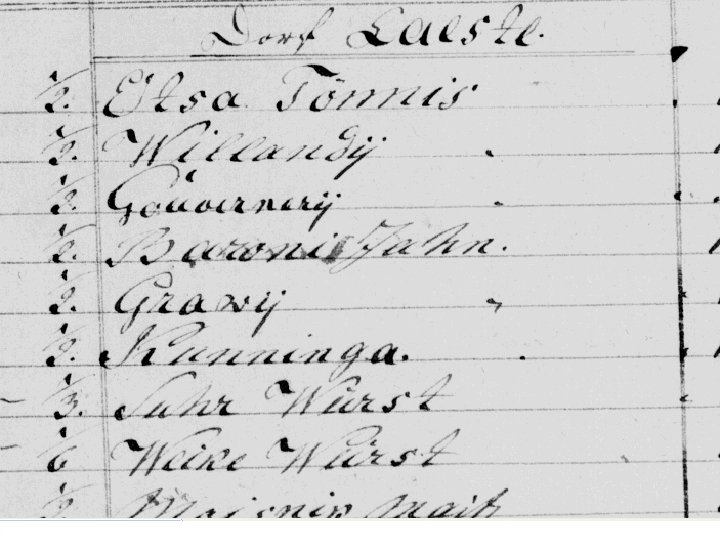 Dorf Laeste.
1/2. Eltsa Tönnis
1/2. Willandij
1/2. Gouvernerij
1/2. Baroni Jahn.
1/2. Grawij
1/2. Kunninga.
1/3. Suhr Würst
1/6 Weike Würst
1/2. Mait